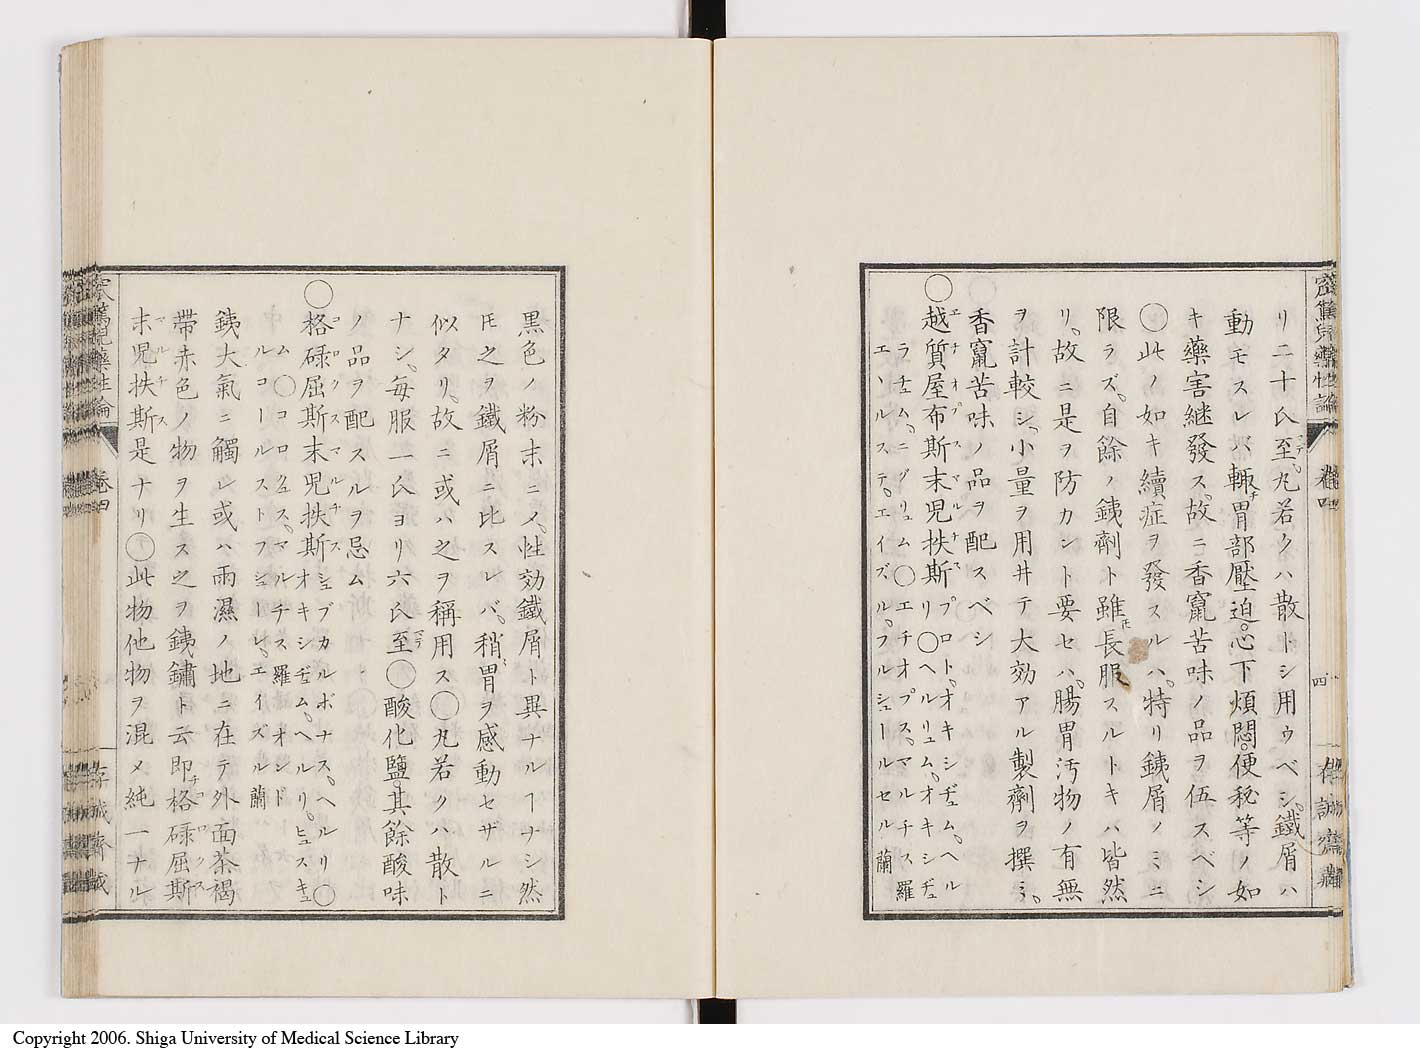 リ二十氏至丸若クハ散トシ用ウベシ鐵屑ハ
動モスレバ輙チ胃部壓迫心下煩悶便秘等ノ如
キ藥害継發ス故ニ香竄苦味ノ品ヲ伍スベシ
〇此ノ如キ續症ヲ發スルハ特リ銕屑ノミニ
限ラズ自餘ノ銕劑ト雖𪜈長服スルトキハ皆然
リ故ニ是ヲ防カント要セハ腸胃汚物ノ有無
ヲ計較シ小量ヲ用井テ大効アル製劑ヲ撰ミ
香竄苦味ノ品ヲ配スベシ
〇越質屋布斯末兕扶斯
エチオプスマルチス
プロト、オキシヂュム、ヘル
リ〇ヘルリュム、オキシヂュ
ラチュム、ニグリュム〇エチオプス、マルチス 羅
エールステ、エイズル、フルシュールセル 蘭
四
存誠齋藏
黒色ノ粉末ニメ性効鐵屑ト異ナルヿナシ然
𪜈之ヲ鐵屑ニ比スレバ稍胃ヲ感動セザルニ
似タリ故ニ或ハ之ヲ稱用ス〇丸若クハ散ト
ナシ毎服一氏ヨリ六氏至〇酸化鹽其餘酸味
ノ品ヲ配スルヲ忌ム
〇格碌屈斯末兕扶斯
コロクスマルチス
シュブカルボナス、ヘルリ〇
オキシヂュム、ヘルリ、ヒュスキュ
ム〇コロクュス、マルチス 羅 オンド
ルコールストフシューレ、エイズル 蘭
銕大氣ニ觸レ或ハ雨濕ノ地ニ在テ外面茶褐
帶赤色ノ物ヲ生ス之ヲ銕鏽ト云即格碌屈斯
末兕扶斯是ナリ〇此物他物ヲ混メ純一ナル
卷四
存誠齋藏
Copyright 2006. Shiga University of Medical Science Library